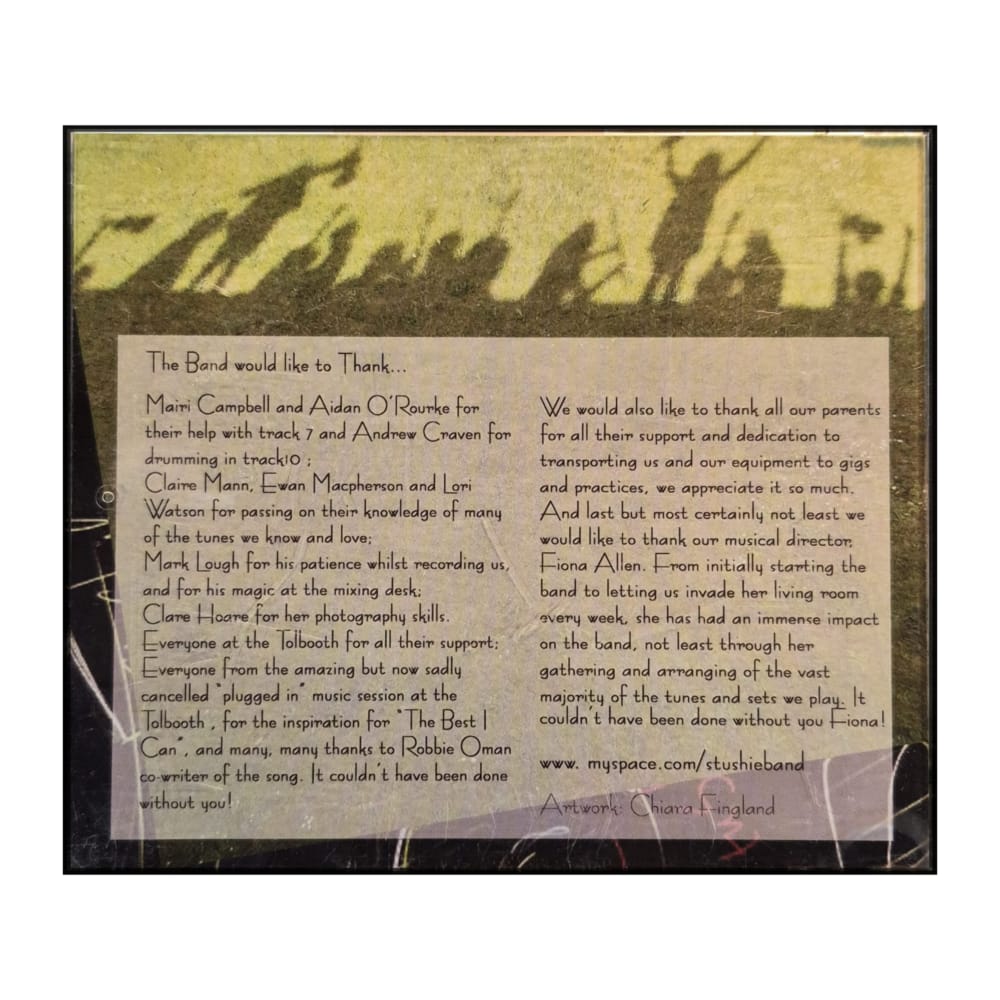 The Band would like to Thank...
Mairi Campbell and Aidan O'Rourke for
their help with track 7 and Andrew Craven for
drumming in track10 ;
Claire Mann, Ewan Macpherson and Lori
Watson for passing on their knowledge of many
of the tunes we know and love;
Mark Lough for his patience whilst recording us,
and for his magic at the mixing desk;
Clare Hoare for her photography skills.
Everyone at the Tolbooth for all their support;
Everyone from the amazing but now sadly
cancelled "plugged in" music session at the
Tolbooth , for the inspiration for "The Best I
Can", and many, many thanks to Robbie Oman
co-writer of the song. It couldn't have been done
without you!
We would also like to thank all our parents
for all their support and dedication to
transporting us and our equipment to gigs
and practices, we appreciate it so much.
And last but most certainly not least we
would like to thank our musical director,
Fiona Allen. From initially starting the
band to letting us invade her living room
every week, she has had an immense impact
on the band, not least through her
gathering and arranging of the vast
majority of the tunes and sets we play. It
couldn't have been done without you Fiona!
www. myspace.com/stushieband
Artwork: Chiara Fingland